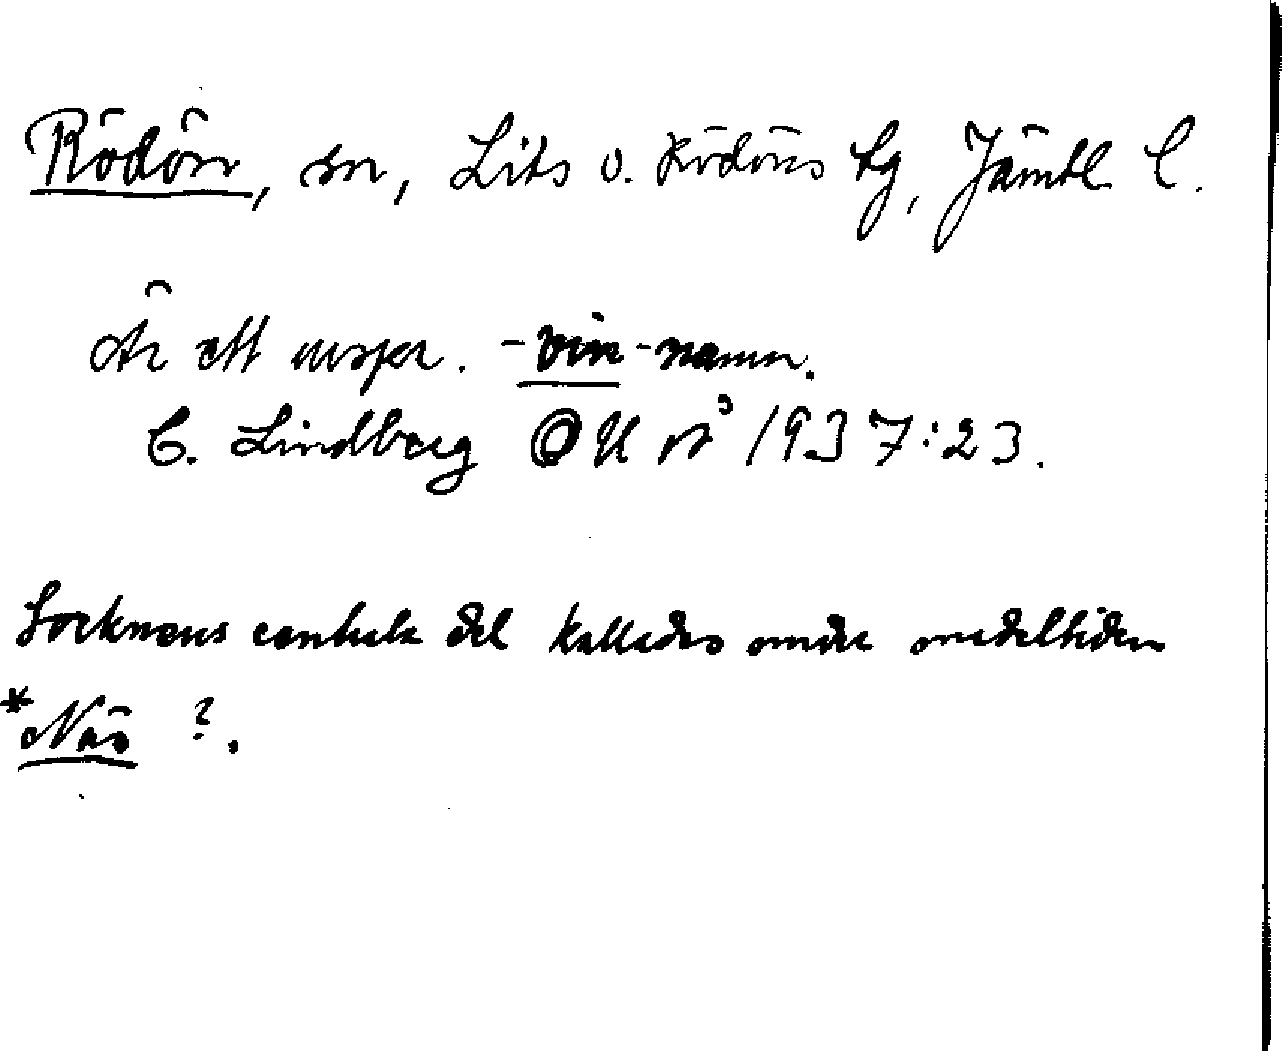 Rödön, sn, Lits o. Rödöns tg, Jämtl l.
Är ett urspr. -vin-namn.
C. Lindberg OUÅ 1937:23.
Socknens centrala del kallades under medeltiden
*Näs ?.